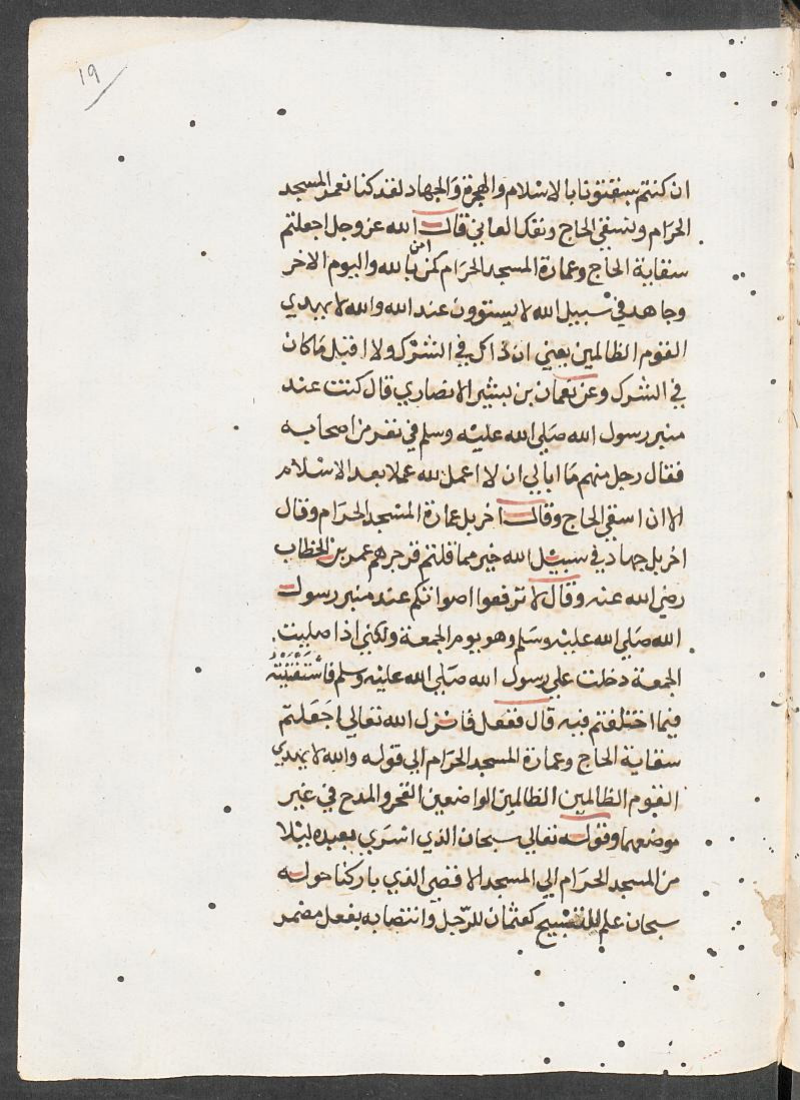 ١٩
ان كنتم سبقتونا بالاسلام والهجرة والجهاد لقد كنا نعمر المسجد
الحرام ونسقي الحاج ونفك العاني قال الله عز وجل اجعلتم
سقاية الحاج وعمارة المسجد الحرام كمن امن بالله واليوم الاخر
وجاهد في سبيل الله لا يستوون عند الله والله لا يهدي
القوم الظالمين يعني ان ذاك في الشرك ولا اقبل ما كان
في الشرك وعن نعمان بن بشير الانصاري قال كنت عند
منبر رسول الله صلي الله عليه وسلم في نفر من اصحابه
فقال رجل منهم ما ابالي ان لا اعمل لله عملا بعد الاسلام
الا ان اسقي الحاج وقال اخر بل عمارة المسجد الحرام وقال
اخر بل جهاد في سبيل الله خير مما قلتم فزجرهم عمر بن الخطاب
رضي الله عنه وقال لا ترفعوا اصواتكم عند منبر رسول
الله صلي الله عليه وسلم وهو يوم الجمعة ولكني اذا صليت
الجمعة دخلت علي رسول الله صلي الله عليه وسلم فاستفتيته
فيما اختلفتم فيه قال ففعل فانزل الله تعالي اجعلتم
سقاية الحاج وعمارة المسجد الحرام الي قوله والله لا يهدي
القوم الظالمين الظالمين الواضعين الفخر والمدح في غير
موضعهما وقوله تعالي سبحان الذي اسري بعبده ليلا
من المسجد الحرام الي المسجد الاقصي الذي باركنا حوله
سبحان علم للتسبيح كعثمان للرجل وانتصابه بفعل مضمر